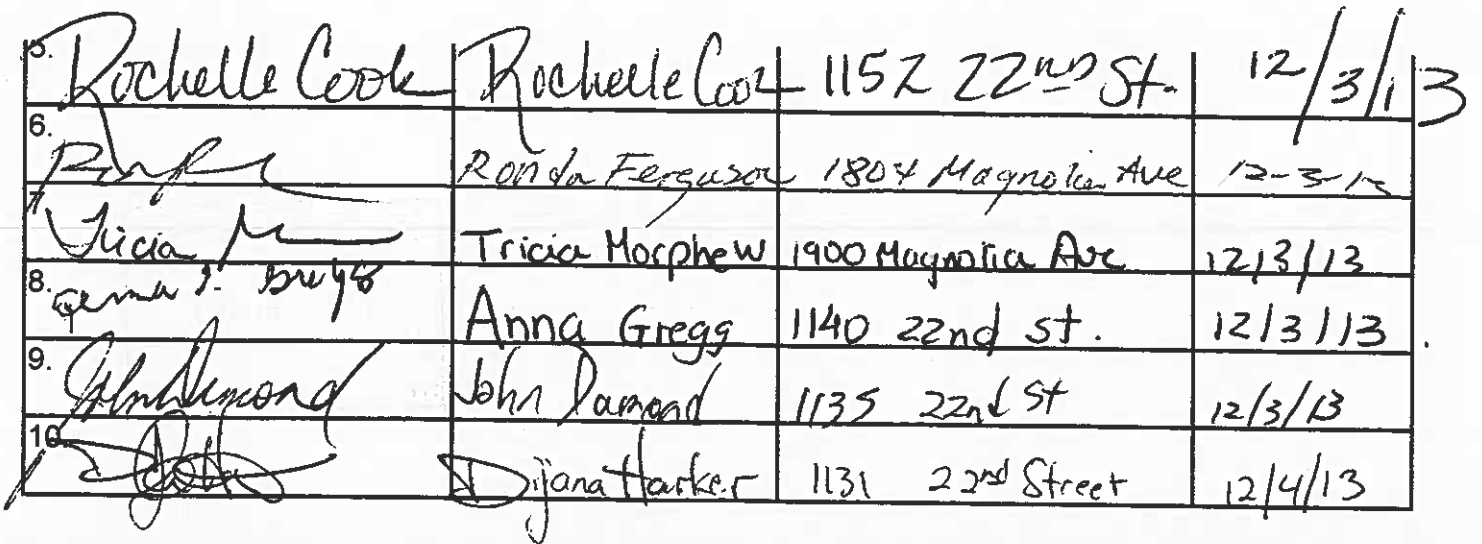 5. Rochelle Cook Rochelle Cook 1152 22nd St. 12/3/13
6. Ronda Ferguson 1804 Magnolia Ave 12-3-13
7. Tricia Tricia Morphew 1900 Magnolia Ave 12/3/13
8. Anna Gregg 1140 22nd st. 12/3/13
9. John Damond John Damond 1135 22nd St 12/3/13
10. Dijana Harker 1131 22nd Street 12/4/13